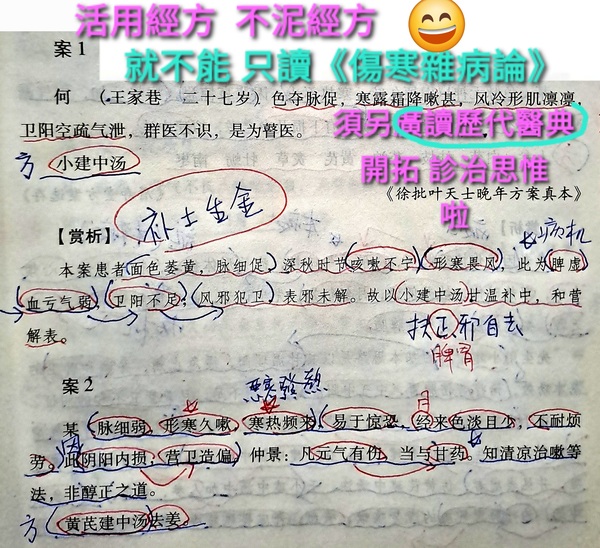 活用經方 不泥經方
就不能 只讀《傷寒雜病論》
案1
何 (王家巷 二十七岁) 色夺脉促，寒露霜降嗽甚，风冷形肌凛凛，
卫阳空疏气泄，群医不识，是为瞀医。
須另廣讀歷代醫典
方 小建中汤
開拓 診治思惟
《徐批叶天士晚年方案真本》
啦
补土生金
【赏析】
病机
本案患者面色萎黄，脉细促，深秋时节咳嗽不宁，形寒畏风，此为脾虚
血亏气弱，卫阳不足，风邪犯卫，表邪未解。故以小建中汤甘温补中，和营
解表。
扶正邪自去
脾胃
案2
惡寒發熱
某 脉细弱，形寒久嗽，寒热频来，易于惊恐，经来色淡且少，不耐烦
月
劳。此阴阳内损，营卫造偏，仲景：凡元气有伤，当与甘药。知清凉治嗽等
法，非醇正之道。
方 黄芪建中汤去姜。